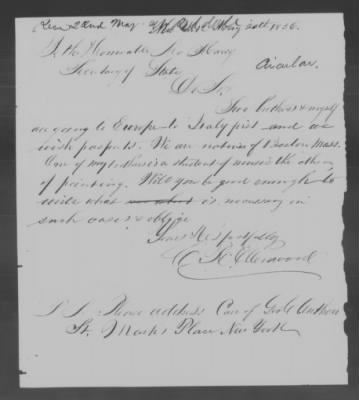 Rec 22nd May
May 20th 1856.
To the Honorable Sec
Secretary of State
Circular.
D Sir
Two brothers & myself
are going to Europe to Italy first and we
wish pasports. We are natives of Boston Mass.
One of my brothers is a student of music the other
of painting. Will you be good enough to
write what is necessary in
such cases & oblige
Yours Respectfully
P.S. Please address Care of Geo C Anthon
St. Marks Place New York